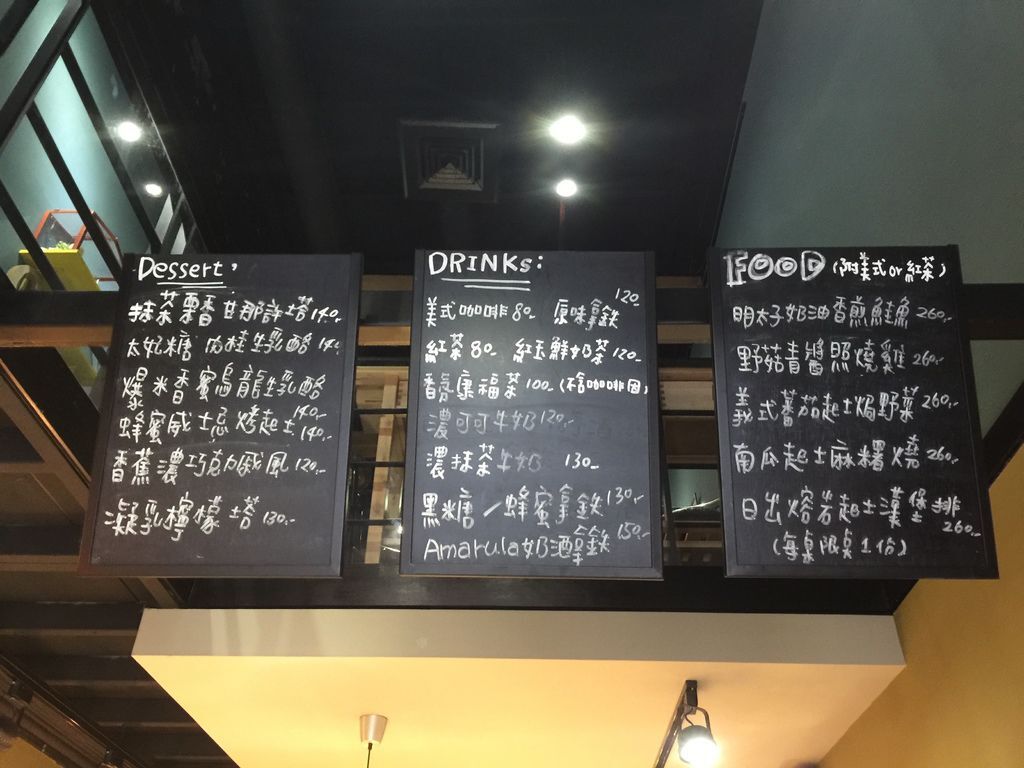 Dessert:
抹茶醺香甘那許塔 140.-
太妃糖肉桂生乳酪 140.-
爆米香蜜烏龍生乳酪 140.-
蜂蜜威士忌烤起士 140.-
香蕉濃巧克力戚風 120.-
凝乳檸檬塔 130.-
DRINKs:
美式咖啡 80.- 原味拿鐵 120.-
紅茶 80.- 紅玉鮮奶茶 120.-
香氛康福茶 100.- (不含咖啡因)
濃可可牛奶 120.-
濃抹茶牛奶 130.-
黑糖/蜂蜜拿鐵 130.-
Amarula奶酒拿鐵 150.-
FOOD (附美式or紅茶)
明太子奶油香煎鮭魚 260.-
野菇青醬照燒雞 260.-
義式蕃茄起士焗野菜 260.-
南瓜起士麻糬燒 260.-
日出熔岩起士漢堡排 260.-
(每桌限桌1份)